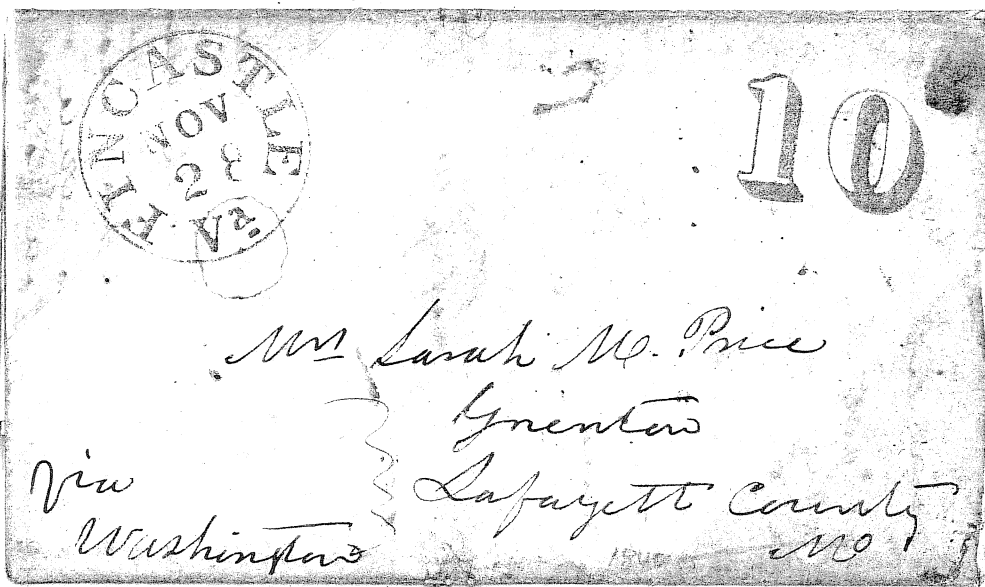 FINCASTLE
NOV
28
Va.
10
Mrs Sarah M. Price
Grenton
Lafayett County
Mo
via
Washington